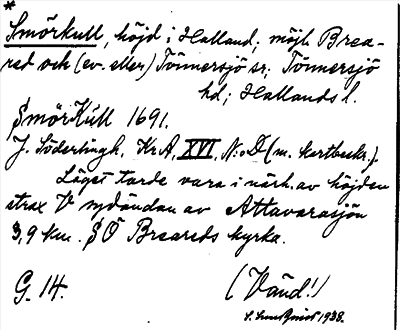 *
Smörkull, höjd i Halland; möjl. Brea-
red och (ev. eller) Tönnersjö sn; Tönnersjö
hd; Hallands l.
Smörkull 1691.
J. Söderlingh, KrA, XVI, N:o D (m. kartbeskr.).
Läget torde vara i närh. av höjden
strax V sydändan av Attavarasjön
3,9 km. SÖ Breareds kyrka.
G. 14.
(Vänd!)
1938.